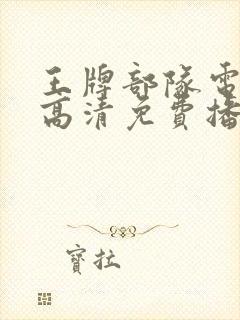 王牌部隊電
高清免費播
寶拉